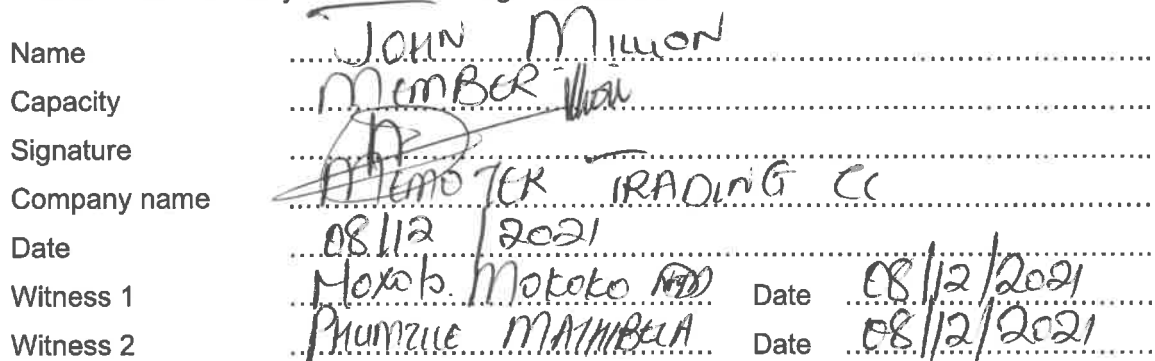 Name JOHN MILLION
Capacity MEMBER
Signature
Company name MEMOTER TRADING CC
Date 08/12/2021
Witness 1 Mokoko Date 08/12/2021
Witness 2 PHUMZILE MATHIBELA Date 08/12/2021